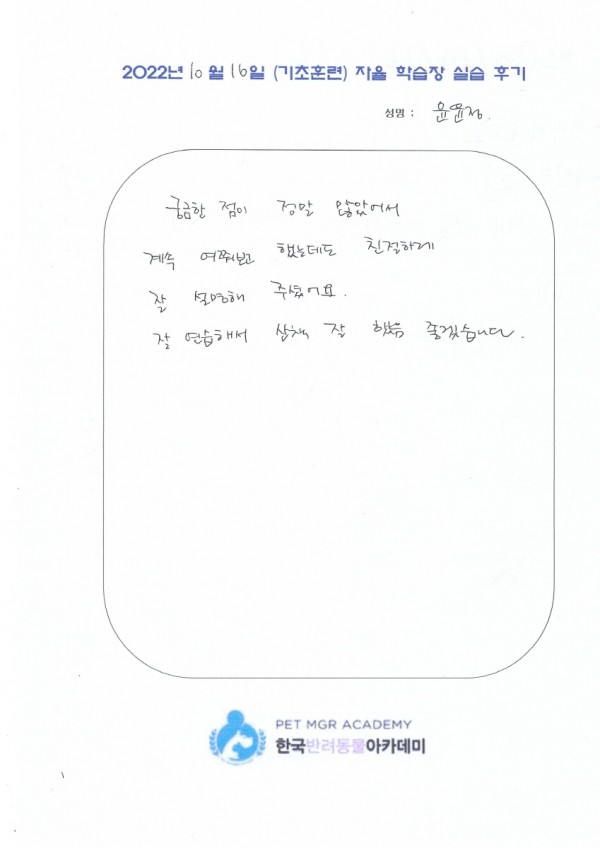 2022년 10월 16일 (기초훈련) 자율 학습장 실습 후기
성명 : 윤윤정.
궁금한 점이 정말 많았어서
계속 여쭤보고 했는데도 친절하게
잘 설명해 주셨어요.
잘 연습해서 산책 잘 했음 좋겠습니다.
PET MGR ACADEMY
한국반려동물아카데미